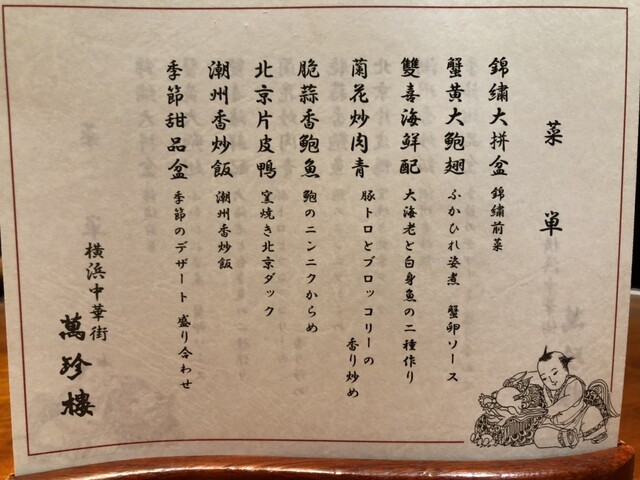 菜單
錦繡大拼盆 錦繡前菜
蟹黄大鮑翅 ふかひれ姿煮 蟹卵ソース
雙喜海鮮配 大海老と白身魚の二種作り
蘭花炒肉青 豚トロとブロッコリーの
香り炒め
脆蒜香鮑魚 鮑のニンニクからめ
北京片皮鴨 窯焼き北京ダック
潮州香炒飯 潮州香炒飯
季節甜品盆 季節のデザート 盛り合わせ
横浜中華街
萬珍樓